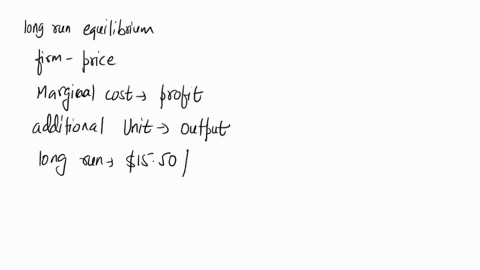 long run equilibrium
firm - price
Marginal cost → profit
additional Unit → output
long run → $15.50/